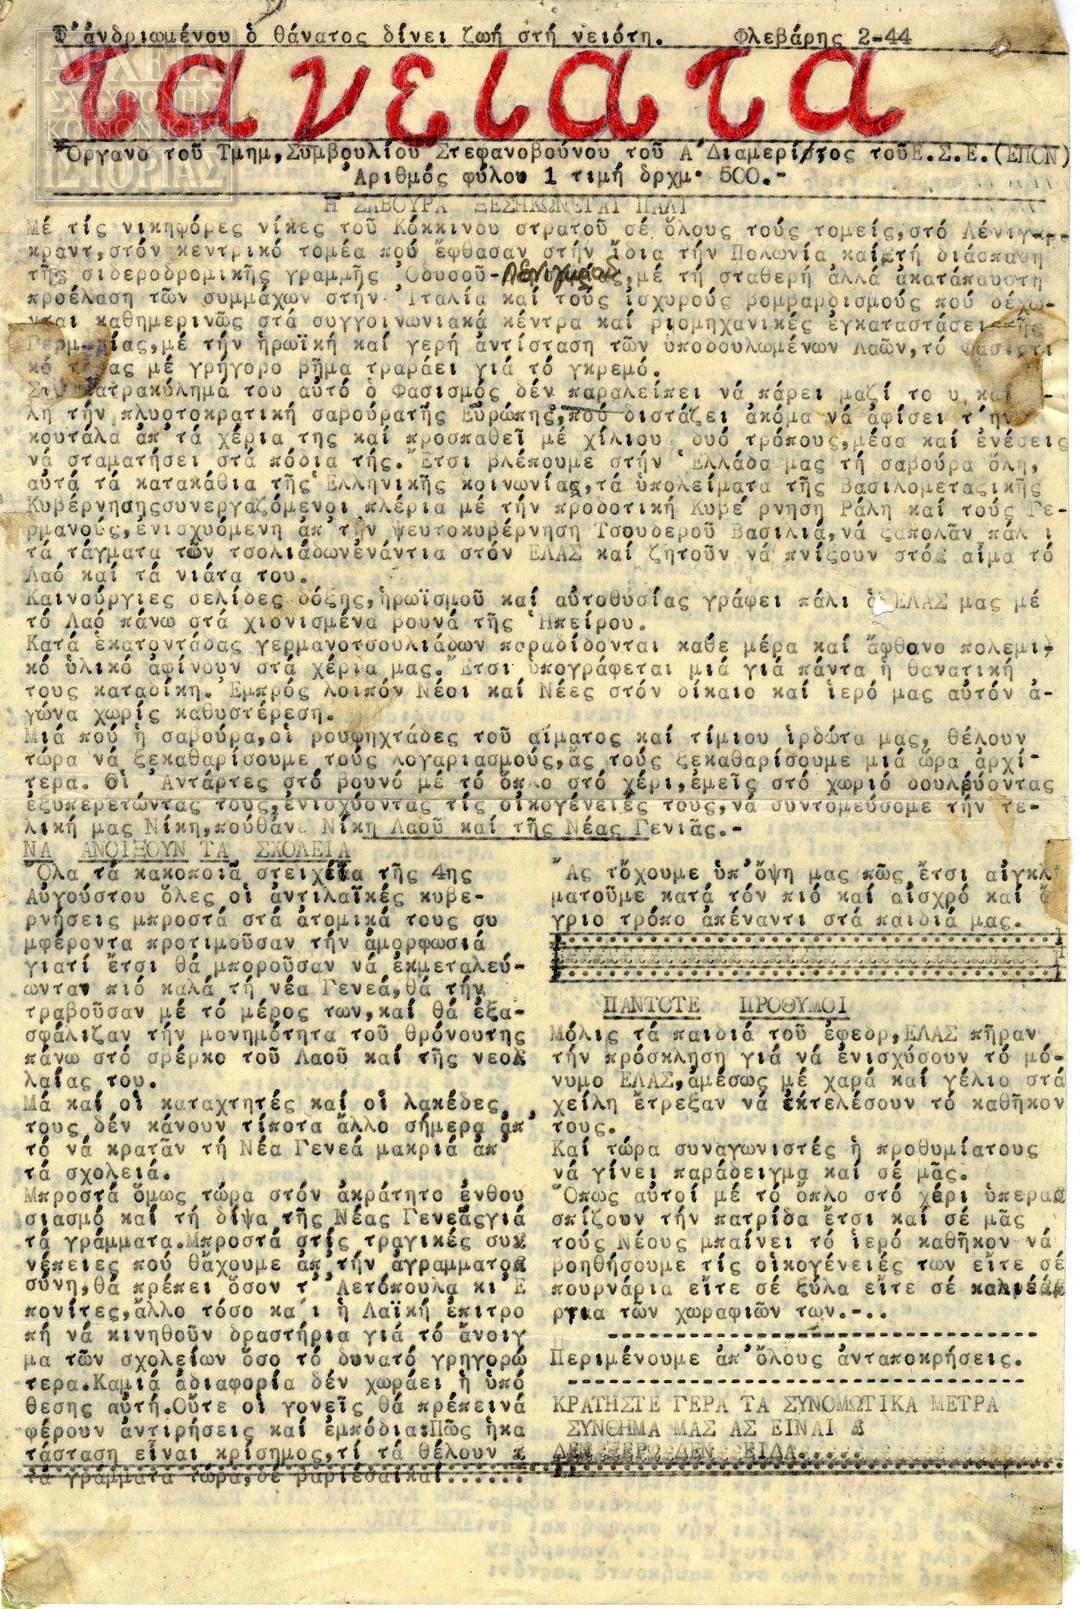 Τ'ἀνδριωμένου ὁ θάνατος δίνει ζωή στή νειότη. Φλεβάρης 2-44
τα νειατα
ΑΡΧΕΙΑ
ΣΥΓΧΡΟΝΗΣ
ΚΟΙΝΩΝΙΚΗΣ
ΙΣΤΟΡΙΑΣ
Ὄργανο τοῦ Τμημ,Συμβουλίου Στεφανοβούνου τοῦ Α΄Διαμερίσ τος τοῦ Ε.Σ.Ε.(ΕΠΟΝ)
Ἀριθμός φύλου 1 τιμή δρχμ· 500.-
Η ΣΑΒΟΥΡΑ ΞΕΣΗΚΩΝΕΤΑΙ ΠΑΛΙ
Μέ τίς νικηφόρες νίκες τοῦ Κόκκινου στρατοῦ σέ ὅλους τούς τομείς,στό Λένιγκ-
κραντ,στόν κεντρικό τομέα πού ἔφθασαν στήν ἴδια τήν Πολωνία καί τή διάσπαση
τῆς σιδεροδρομικῆς γραμμῆς Ὀδυσοῦ-Λένιγκραδ,μέ τή σταθερή ἀλλά ἀκατάπαυστη
προέλαση τῶν συμμάχων στήν Ἰταλία καί τούς ἰσχυρούς βομβαρδισμούς πού δέχω-
νται καθημερινῶς στά συγγοινωνιακά κέντρα καί βιομηχανικές ἐγκαταστάσεις τῆς
Γερμανίας,μέ τήν ἡρωϊκή καί γερή ἀντίσταση τῶν ὑποδουλωμένων Λαῶν,τό Φασιστι
κό τέρας μέ γρήγορο βῆμα τραβάει γιά τό γκρεμό.
Στό κατρακύλημά του αὐτό ὁ Φασισμός δέν παραλείπει νά πάρει μαζί το υ και
λη τήν πλουτοκρατική σαβούρατῆς Εὐρώπης,πού διστάζει ἀκόμα νά ἀφίσει τ'ήν
κουτάλα ἀπ'τά χέρια της καί προσπαθεῖ μέ χίλιου δυό τρόπους,μέσα καί ἐνέσεις
νά σταματήσει στά πόδια τῆς. Ἔτσι βλέπουμε στήν Ἑλλάδα μας τή σαβούρα ὅλη,
αὐτά τά κατακάθια τῆς Ἑλληνικῆς κοινωνίας,τά ὑπολείματα τῆς Βασιλομεταξικῆς
Κυβέρνησηςσυνεργαζόμενοι πλέρια μέ τήν προδοτική Κυβέ ρνηση Ράλη καί τούς Γε-
ρμανούς,ἐνισχυόμενη ἀπ'τήν ψευτοκυβέρνηση Τσουδεροῦ Βασιλιά,νά ξαπολᾶν πάλ ι
τά τάγματα τῶν τσολιάδωνἐνάντια στόν ΕΛΑΣ καί ζητοῦν νά πνίξουν στό αἷμα τό
Λαό καί τά νιάτα του.
Καινούργιες σελίδες δόξης,ἡρωϊσμοῦ καί αὐτοθυσίας γράφει πάλι ὁ ΕΛΑΣ μας μέ
τό Λαό πάνω στά χιονισμένα βουνά τῆς Ἠπείρου.
Κατά ἑκατοντάδας γερμανοτσουλιάδων παραδίδονται καθε μέρα καί ἄφθανο πολεμι
κό ὑλικό ἀφίνουν στά χέρια μας. Ἔτσι ὑπογράφεται μιά γιά πάντα ἡ θανατική
τους καταδίκη. Ἐμπρός λοιπόν Νέοι καί Νέες στόν δίκαιο καί ἱερό μας αὐτόν ἀ-
γώνα χωρίς καθυστέρεση.
Μιά πού ἡ σαβούρα,οἱ ρουφηχτάδες τοῦ αἵματος καί τίμιου ἱρδώτα μας, θέλουν
τώρα νά ξεκαθαρίσουμε τούς λογαριασμούς,ἄς τούς ξεκαθαρίσουμε μιά ὥρα ἀρχί-
τερα. Οἱ Ἀντάρτες στό βουνό μέ τό ὅπλο στό χέρι,ἐμεῖς στό χωριό δουλεύοντας
ἐξυπερετῶντας τους,ἐνισχύοντας τίς οἰκογένειές τους,νά συντομεύσομε τήν τε-
λική μας Νίκη,πούθάνε Νίκη Λαοῦ καί τῆς Νέας Γενιᾶς.-
ΝΑ ΑΝΟΙΞΟΥΝ ΤΑ ΣΧΟΛΕΙΑ
Ὅλα τά κακοποιά στειχεῖα τῆς 4ης
Αὐγούστου ὅλες οἱ ἀντιλαϊκές κυβε-
ρνήσεις μπροστά στά ἀτομικά τους συ
μφέροντα προτιμοῦσαν τήν ἀμορφωσιά
γιατί ἔτσι θά μποροῦσαν νά ἐκμεταλεύ-
ωνταν πιό καλά τή νέα Γενεά,θά τήν
τραβοῦσαν μέ τό μέρος των,καί θά ἐξα-
σφάλιζαν τήν μονημότητα τοῦ θρόνουτης
πάνω στό σβέρκο τοῦ Λαοῦ καί τῆς νεο
λαίας του.
Μά καί οἱ καταχτητές καί οἱ λακέδες
τους δέν κάνουν τίποτα ἄλλο σήμερα ἀπ'
τό νά κρατᾶν τή Νέα Γενεά μακριά ἀπ'
τά σχολειά.
Μπροστά ὅμως τώρα στόν ἀκράτητο ἐνθου
σιασμό καί τή δίψα τῆς Νέας Γενεᾶςγιά
τά γράμματα.Μπροστά στίς τραγικές συν
νέπειες πού θἄχουμε ἀπ'τήν ἀγραμματο
σύνη,θά πρέπει ὅσον τ'Ἀετόπουλα κι Ἐ
πονίτες,ἄλλο τόσο κα ι ἡ Λαϊκή ἐπιτρο
πή νά κινηθοῦν δραστήρια γιά τό ἄνοιγ
μα τῶν σχολείων ὅσο τό δυνατό γρηγορώ
τερα.Καμιά ἀδιαφορία δέν χωράει ἡ ὑπό
θεσης αὐτή.Οὔτε οἱ γονεῖς θά πρέπεινά
φέρουν ἀντιρήσεις καί ἐμπόδια:Πῶς ἡκα
τάσταση εἶναι κρίσημος,τί τά θέλουν τ
τά γράμματα τώρα,δέ βαρίεσαικαί......
Ἄς τὄχουμε ὑπ'ὄψη μας πῶς ἔτσι αἰγκλ
ματοῦμε κατά τόν πιό καί αἰσχρό καί ἄ
γριο τρόπο ἀπέναντι στά παιδιά μας.
ΠΑΝΤΟΤΕ ΠΡΟΘΥΜΟΙ
Μόλις τά παιδιά τοῦ ἐφεδρ,ΕΛΑΣ πῆραν
τήν πρόσκληση γιά νά ἐνισχύσουν τό μό-
νυμο ΕΛΑΣ,ἀμέσως μέ χαρά καί γέλιο στά
χείλη ἔτρεξαν νά ἐκτελέσουν τό καθῆκον
τους.
Καί τώρα συναγωνιστές ἡ προθυμίατους
νά γίνει παράδειγμα καί σέ μᾶς.
Ὅπως αὐτοί μέ τό ὅπλο στό χέρι ὑπερα
σπίζουν τήν πατρίδα ἔτσι καί σέ μᾶς
τούς Νέους μπαίνει τό ἱερό καθῆκον νά
βοηθήσουμε τίς οἰκογένειές των εἴτε σέ
πουρνάρια εἴτε σέ ξύλα εἴτε σέ καλιέ
ργια τῶν χωραφιῶν των.-..
Περιμένουμε ἀπ'ὅλους ἀνταποκρήσεις.
ΚΡΑΤΗΣΤΕ ΓΕΡΑ ΤΑ ΣΥΝΟΜΩΤΙΚΑ ΜΕΤΡΑ
ΣΥΝΘΗΜΑ ΜΑΣ ΑΣ ΕΙΝΑΙ
ΔΕΝ ΞΕΡΩ ΔΕΝ ΕΙΔΑ....